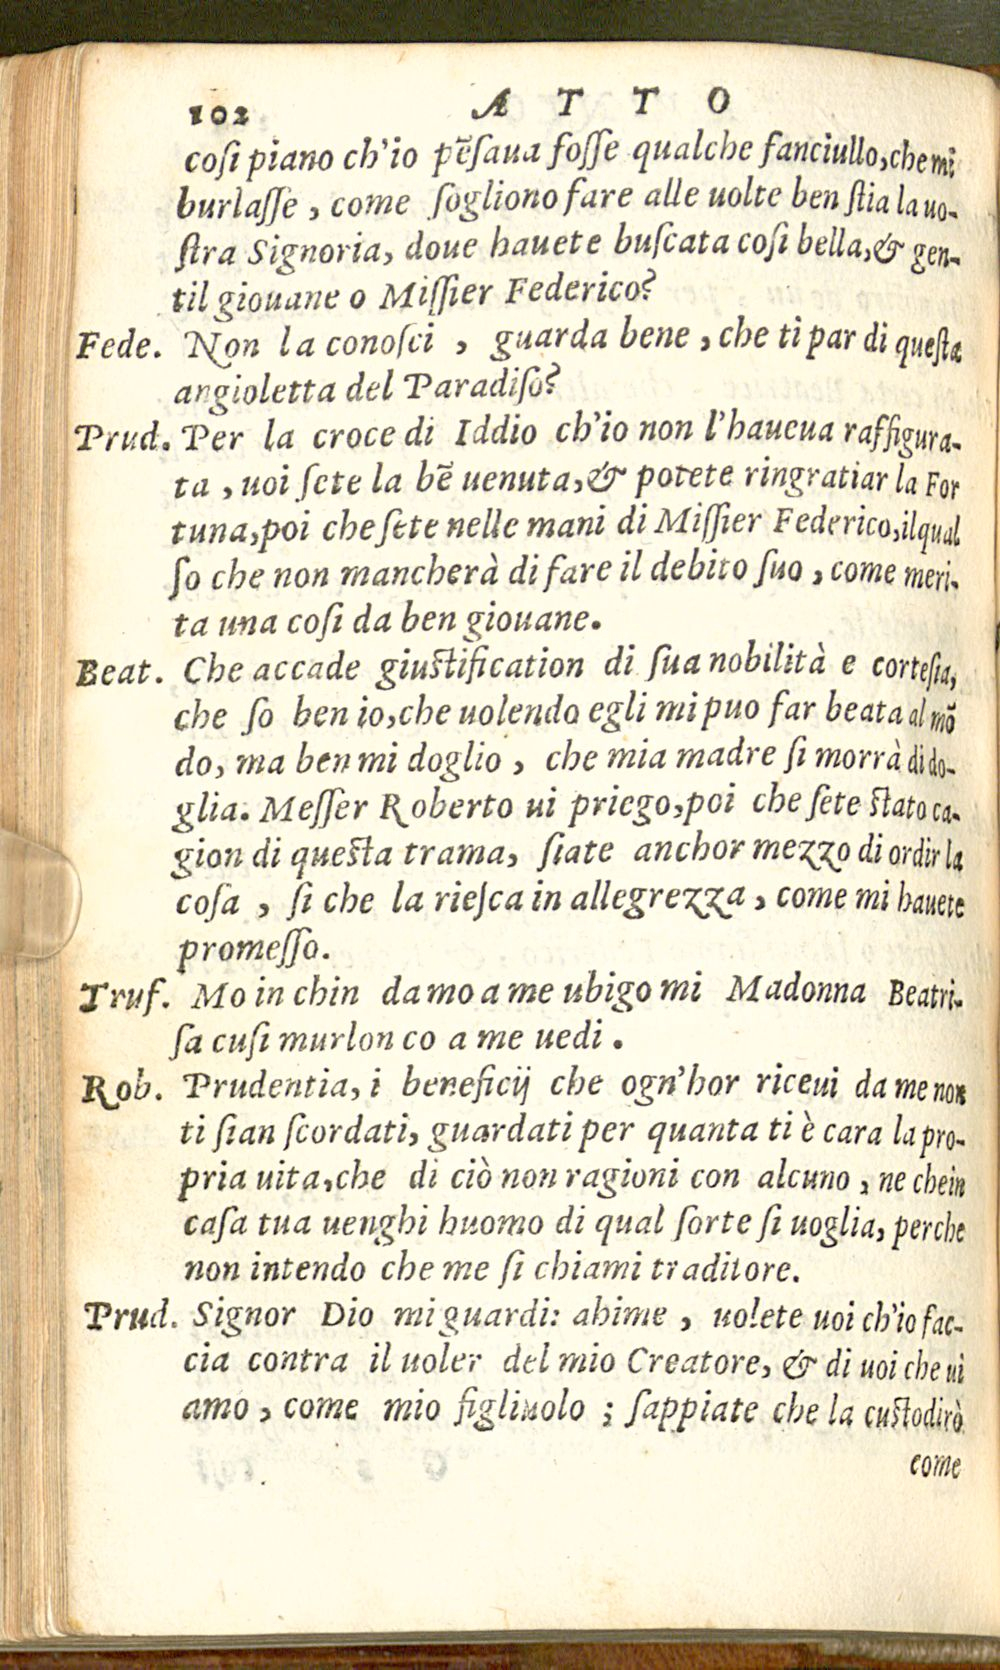 102 ATTO
cosi piano ch'io pēsaua fosse qualche fanciullo, che mi
burlasse, come sogliono fare alle uolte ben stia la uo-
stra Signoria, doue hauete buscata cosi bella, & gen-
til giouane o Missier Federico?
Fede. Non la conosci, guarda bene, che ti par di questa
angioletta del Paradiso?
Prud. Per la croce di Iddio ch'io non l'haueua raffigura-
ta, uoi sete la bē uenuta, & potete ringratiar la For
tuna, poi che sete nelle mani di Missier Federico, il qual
so che non mancherà di fare il debito suo, come meri-
ta una cosi da ben giouane.
Beat. Che accade giustification di sua nobilità e cortesia,
che so ben io, che uolendo egli mi puo far beata al mō
do, ma ben mi doglio, che mia madre si morrà di do-
glia. Messer Roberto ui priego, poi che sete stato ca-
gion di questa trama, siate anchor mezzo di ordir la
cosa, si che la riesca in allegrezza, come mi hauete
promesso.
Truf. Mo in chin da mo a me ubigo mi Madonna Beatri-
sa cusi murlon co a me uedi.
Rob. Prudentia, i beneficij che ogn'hor riceui da me non
ti sian scordati, guardati per quanta ti è cara la pro-
pria uita, che di ciò non ragioni con alcuno, ne che in
casa tua uenghi huomo di qual sorte si uoglia, perche
non intendo che me si chiami traditore.
Prud. Signor Dio mi guardi: ahime, uolete uoi ch'io fac-
cia contra il uoler del mio Creatore, & di uoi che ui
amo, come mio figliuolo; sappiate che la custodirò
come